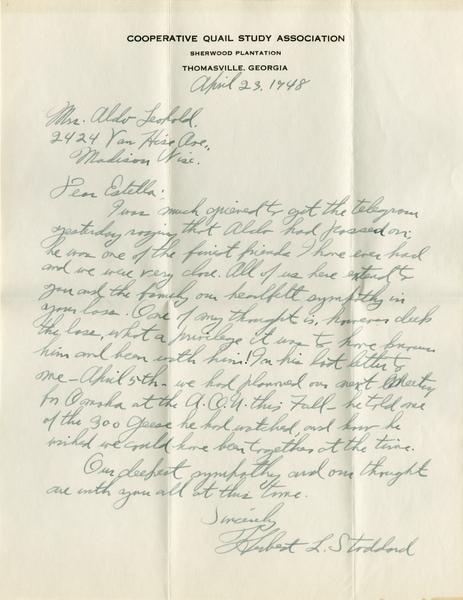 COOPERATIVE QUAIL STUDY ASSOCIATION
SHERWOOD PLANTATION
THOMASVILLE, GEORGIA
April 23, 1948
Mrs. Aldo Leopold.
2424 Van Hise Ave.,
Madison Wisc.
Dear Estella:
I was much grieved to get the telegram
yesterday saying that Aldo had passed on;
he was one of the finest friends I have ever had
and we were very close. All of us here extend to
you and the family our heartfelt sympathy in
your loss. One of my thought is, however deep
the loss, what a privilege it was to have known
him and been with him! In his last letter to
me – April 5th – we had planned our next meeting
for Canada at the A.O.U. this Fall – he told me
of the 300 Geese he had watched, and how he
wished we could have been together at the time.
Our deepest sympathy and our thought
are with you all at this time.
Sincerely
Herbert L. Stoddard